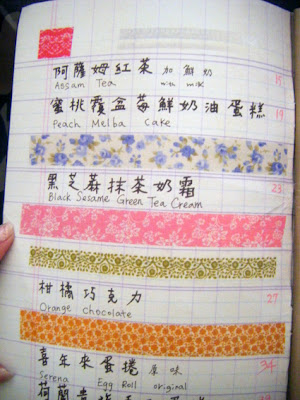 阿薩姆紅茶 加鮮奶 15
Assam Tea with milk
蜜桃覆盆莓鮮奶油蛋糕 19
Peach Melba Cake
黑芝蔴抹茶奶霜 23
Black Sesame Green Tea Cream
柑橘巧克力 27
Orange Chocolate
喜年來蛋捲 原味 34
Serena Egg Roll original
荷蘭